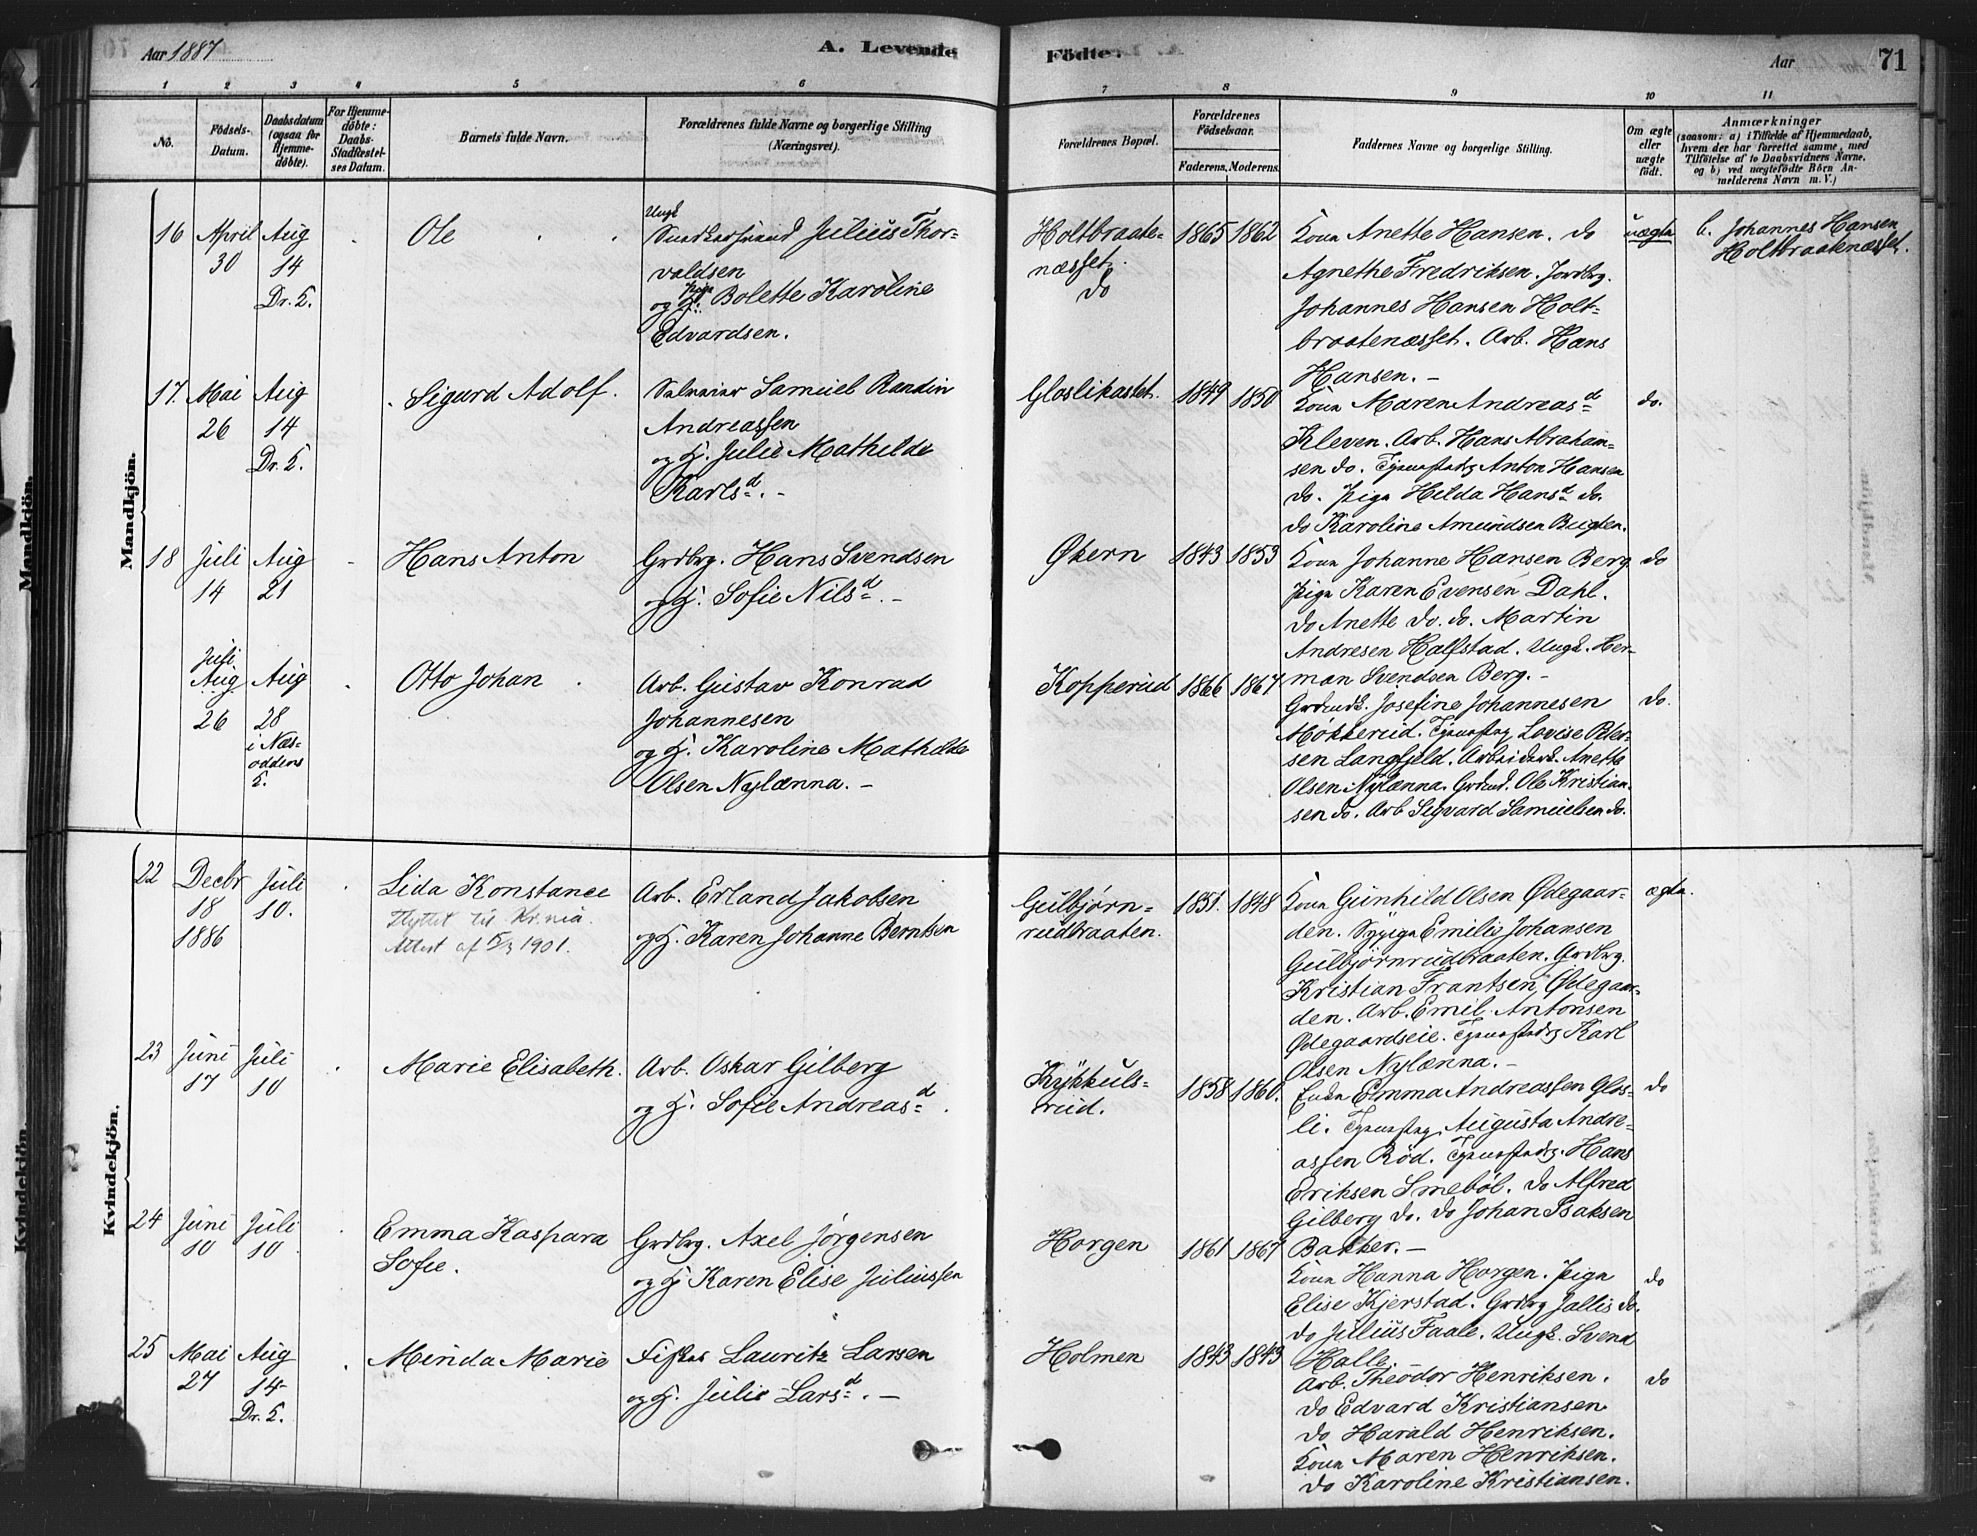 Aar 1887
A. Levende
Födte.
Aar
71
1 2 3 4 5 6 7 8 9 10 11
No.
Födsels-
Datum.
Daabsdatum
(ogsaa for
Hjemme-
döbte).
For Hjemme-
döbte:
Daabs-
Stadfæstel-
ses Datum.
Barnets fulde Navn.
Forældrenes fulde Navne og borgerlige Stilling
(Næringsvei).
Forældrenes Bopæl.
Forældrenes
Födselsaar.
Faderens. Moderens.
Faddernes Navne og borgerlige Stilling.
Om ægte
eller
uægte
födt.
Anmærkninger
(saasom: a) i Tilfælde af Hjemmedaab,
hvem der har forrettet samme, med
Tilföielse af to Daabsvidners Navne,
og b) ved uægtefödte Börn An-
melderens Navn m. V.)
Mandkjön.
16
April
30
Aug
14
Dr. K.
Ole
Ungk
Julius Thor-
valdsen
og Pige Bolette Karoline
Edvardsen.
Holtbraate-
næsset.
do
1865 1862
Kone Anette Hansen. do
Agnethe Fredriksen. Jordbrg.
Johannes Hansen Holt-
braatenæsset. Arb. Hans
Hansen. –
uægte
b. Johannes Hansen
Holtbraatenæsset.
17.
Mai
26
Aug
14
Dr. K.
Sigurd Adolf.
Samuel Randin
Andreassen
og H. Julie Mathilde
Karlsd. –
Gloslikastet.
1849 1850
Kone Maren Andreasd
Kleven. Arb. Hans Abraham-
sen do. Tjenestedrg Anton Hansen
do. Pige Hilda Hansd do.
do Karoline Amundsen Bugten.
do.
18
Juli
14
Aug
21
Hans Anton
Grdbrg. Hans Svendsen
og H. Sofie Nilsd. –
Økern
1843 1853
Kone Johanne Hansen Berg
Pige Karen Evensen Dahl.
do Anette do. do. Martin
Andresen Halfstad. Ungk. Her-
man Svendsen Berg. –
do
Juli
Aug
26
Aug
28
i Næs-
oddens
K.
Otto Johan
Arb. Gustav Konrad
Johannesen
og H. Karoline Mathilde
Olsen Nylænna. –
Kopperud
1866 1867
Josefine Johannesen
Møkkerud. Tjenestepg Lovise Peter-
sen Langfjeld. Arbeidersk. Anette
Olsen Nylænna. Grdmd. Ole Kristian-
sen do. Arb Sigvard Samuelsen do.
do.
Kvindekjön.
22
Decbr
18
1886
Juli
10.
Lida Konstance
Flyttet til Kr.nia.
Attest af 5/3 1901.
Arb. Erland Jakobsen
og H. Karen Johanne Berntsen
Gulbjørn-
rudbraaten.
1851. 1848
Kone Gunhild Olsen Ødegaar-
den. Sypige Emilie Johansen
Gulbjørnrudbraaten. Grdbrg.
Kristian Frantsen, Ødegaar-
den. Arb. Emil Antonsen
Ødegaardseie. Tjenestedrg Karl
Olsen Nylænna. –
ægte.
23
Juni
17
Juli
10
Marie Elisabeth.
Arb. Oskar Gilberg
og H. Sofie Andreasd.
Kykkuls-
rud.
1858 1860.
Enke Emma Andreassen Glos-
li. Tjenestepg. Augusta Andre-
assen Röd. Tjenestedrg. Hans
Eriksen Smeböl. do Alfred
Gilberg do. do Johan Isaksen
Bakker. –
do
24
Juni
10
Juli
10
Emma Kaspara
Sofie.
Grdbrg. Axel Jørgensen
og H Karen Elise Juliussen
Horgen
1861 1867
Kone Hanna Horgen. Pige
Elise Kjerstad. Grdbrg Jallis do.
do Julius Faale. Ungk. Svend
Halle.
do
25
Mai
27
Aug
14
Dr. K.
Minda Marie
Fisker Lauritz Larsen
og H. Julie Larsd. –
Holmen
1843 1843
Arb. Theodor Henriksen.
do Edvard Kristiansen
do Harald Henriksen.
Kone Maren Henriksen.
do Karoline Kristiansen.
do